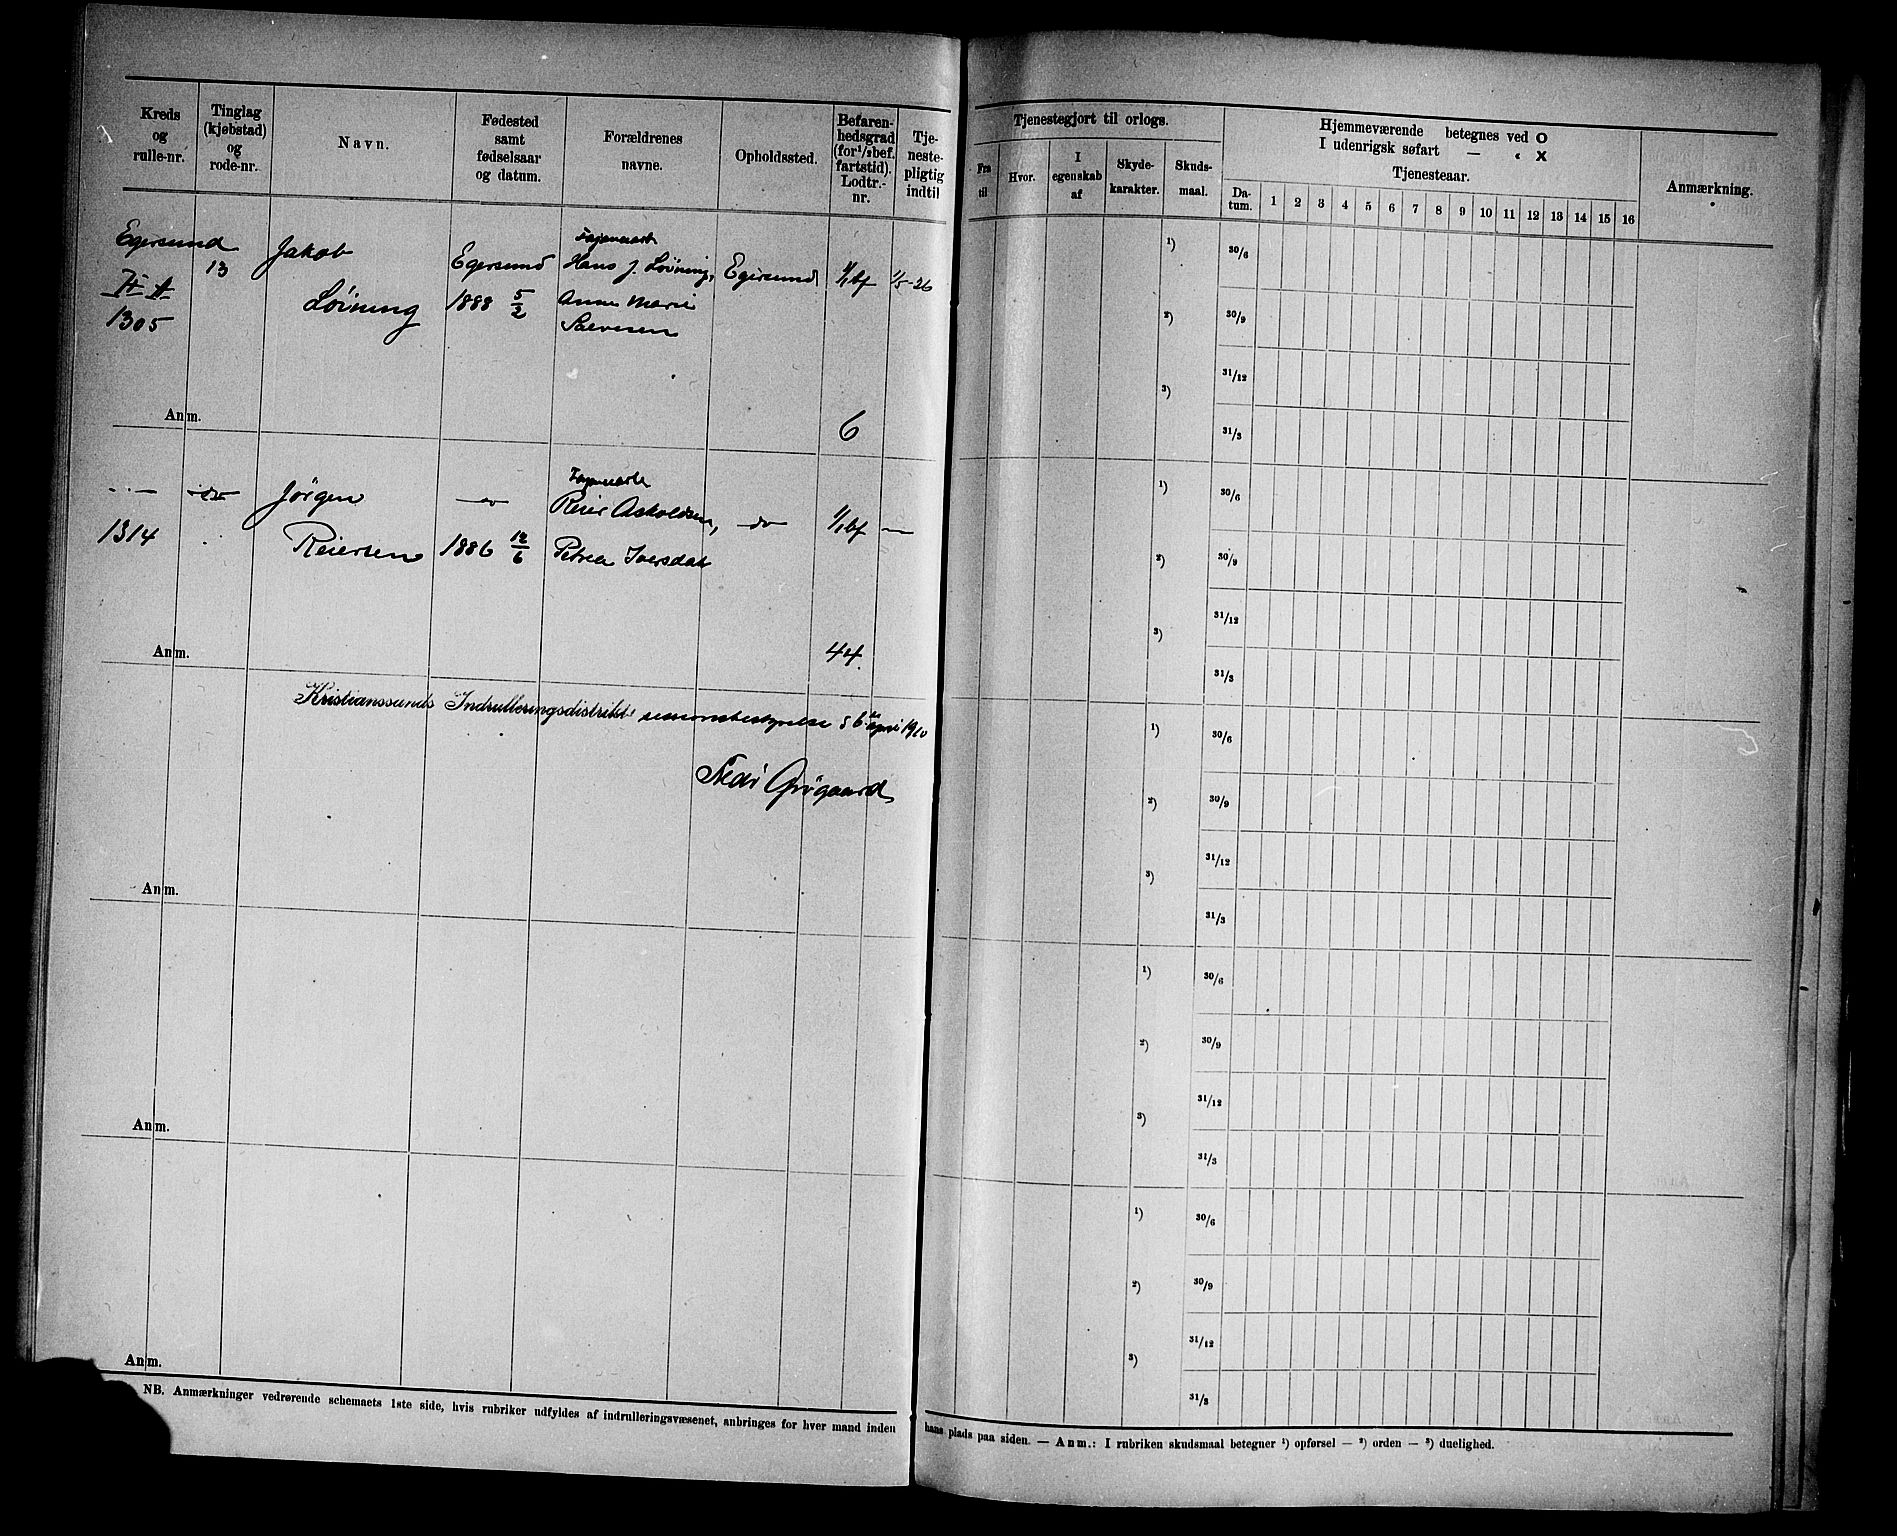 Kreds
og
rulle-nr.
Tinglag
(kjøbstad)
og
rode-nr.
Navn.
Fødested
samt
fødselsaar
og datum.
Forældrenes
navne.
Opholdssted.
Befaren-
hedsgrad
(for 1/2 bef.
fartstid).
Lodtr.-
nr.
Tje-
neste-
pligtig
indtil
Tjenestegjort til orlogs.
Fra
til
Hvor.
I
egenskab
af
Skyde-
karakter.
Skuds-
maal.
Hjemmeværende betegnes ved O
I udenrigsk søfart — « X
Tjenesteaar.
Da-
tum.
1 2 3 4 5 6 7 8 9 10 11 12 13 14 15 16
Anmærkning.
Egersund
13
Jakob
Egersund
Hans J. Löining,
Egersund
1/1 bf
1/5-26
II A
1305
Löining
1888 5/2
Anne Marie
Salvesen
Anm.
6
1) 30/6
2) 30/9
31/12
3)
31/3
— " —
do
Jörgen
do
Reier Askoldsen,
do
1/1 bf
—
1314
Reiersen
1886 12/6
Petrea Iversdat
Anm.
44.
1) 30/6
2) 30/9
31/12
3)
31/3
Kristianssands Indrulleringsdistrikts sessionsbestyrelse d 6 april 1910
Grögaard
Anm.
1) 30/6
2) 30/9
31/12
3)
31/3
Anm.
1) 30/6
2) 30/9
31/12
3)
31/3
Anm.
1) 30/6
2) 30/9
31/12
3)
31/3
NB. Anmærkninger vedrørende schemaets 1ste side, hvis rubriker udfyldes af indrulleringsvæsenet, anbringes for hver mand inden hans plads paa siden. — Anm.: I rubriken skudsmaal betegner 1) opførsel — 2) orden — 3) duelighed.